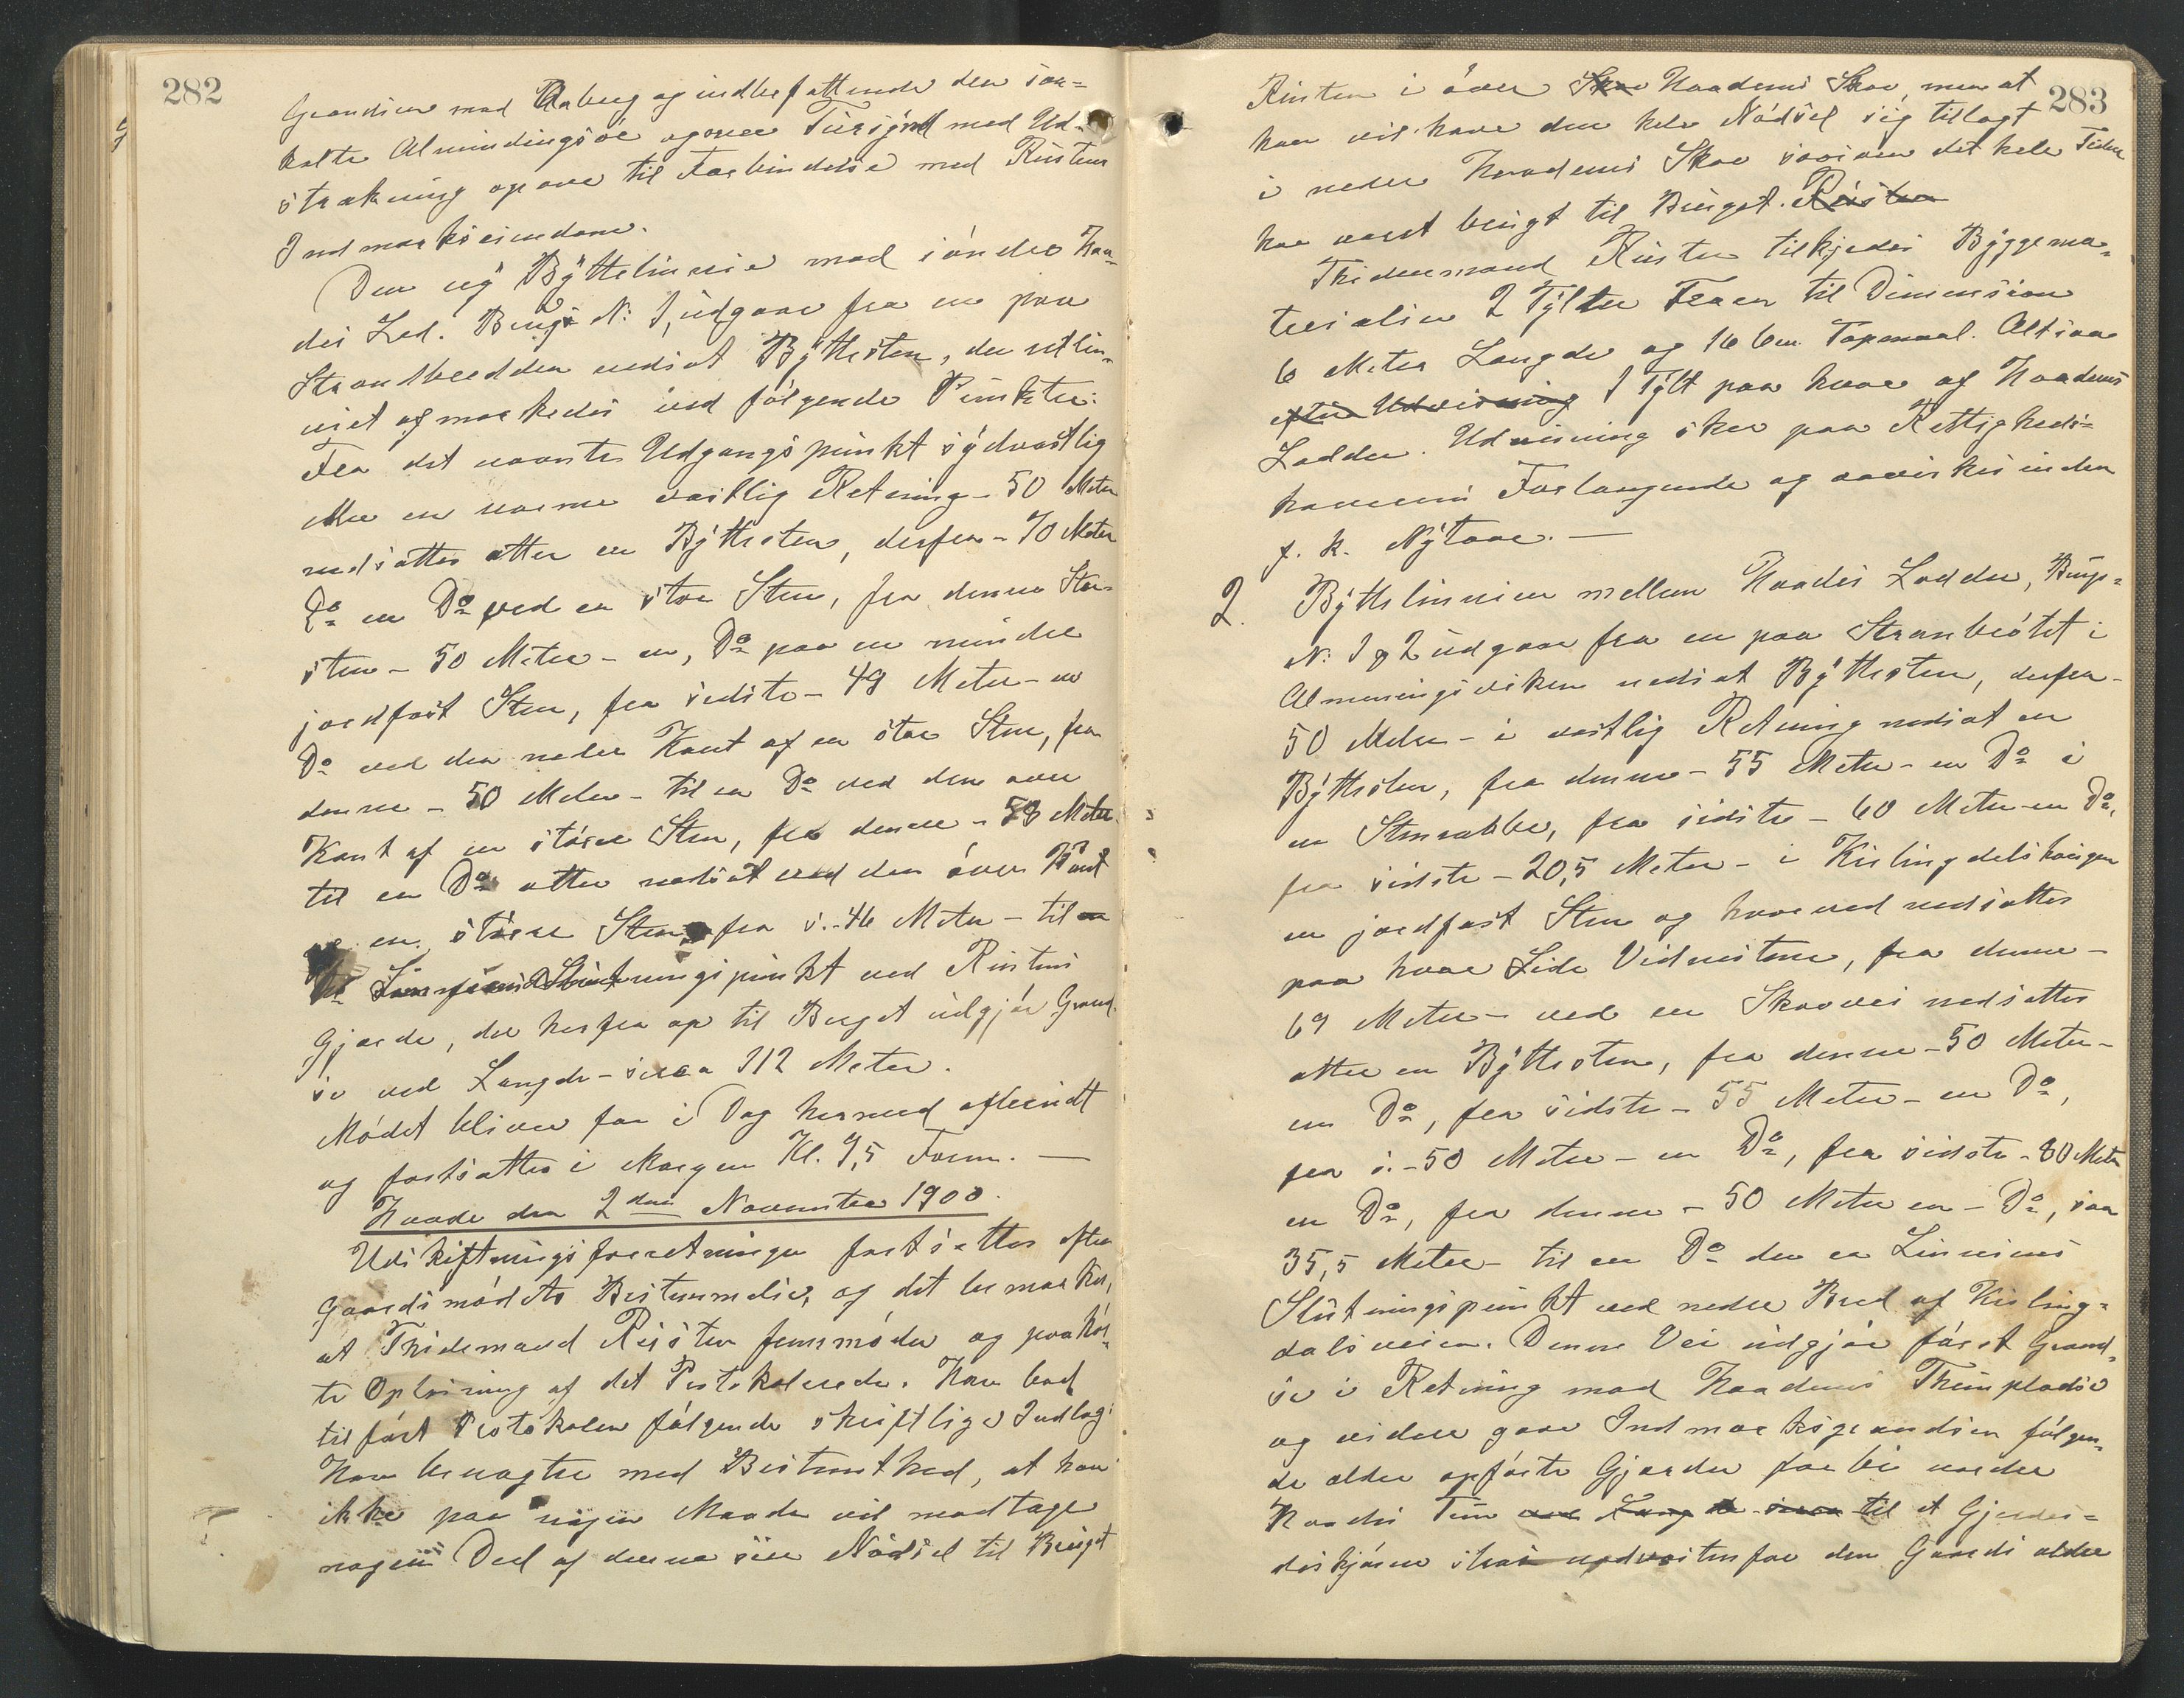 282
Grændsen mod Aaberg og indbefattende den saa-
kalte Almindingsøe og øvre Tuesynd med Ud-
strækning opover til Forbindelse med Rustens
Indmarkseiendom.
Den ny Byttelinnie mod søndre Haa-
des Lod. Brugs N: 1, udgaar fra en paa
Strandbredden nedsat Byttesten, der retlin-
iet afmærkedes ved følgende Punkter:
Fra det nævnte Udgangspunkt sydvæstlig
eller en nærme væstlig Retning - 50 Meter
nedsattes atter en Byttesten, derfra - 70 Meter
Do en Do ved en stor Sten, fra denne Stor-
sten - 50 Meter - en, Do paa en mindre
jordfast Sten, fra sidste - 49 Meter - en
Do ved den nedre Kant af en stor Sten, fra
denne - 50 Meter - til en Do ved den øvre
Kant af en større Sten, fra denne - 58 Meter
til en Do atter nedsat ved den øvre Kant
en større Sten, fra s. - 46 Meter - til en
Do Slutningspunkt ved Rustens
Gjærde, der herfra op til Berget udgjør Grænd-
se ved Længde - cirka 112 Meter.
Mødet bliver for i Dag hermed afbrudt
og fortsættes i Morgen Kl. 9,5 Form. —
Haade den 2den November 1900.
Udskiftningsforretningen fortsattes efter
Gaardsmødets Bestemmelse, og det bemærkes,
at Thidemand Rusten fremmøder og paahør-
te Oplæsning af det Protokolerede. Han bad
tilført Protokolen følgende skriftlige Indlæg:
Han benægter med Bestemthed, at han
ikke paa nogen Maade vil modtage
nogen Deel af denne sin Nødsel til Bruget
283
Rusten i øvre Skov Haadems Skov, men at
han vil have den hele Nødsel sig tillagt
i nedre Haadems Skov saasom det hele Tiden
har været brugt til Bruget. Rusten
Thidemand Rusten tilkjedes Byggema-
terialier 2 Tylter Træer til Dimension
6 Meter Længde og 16 cm. Topmaal. Altsaa
efter Udvisning 1 Tylt paa hver af Haadems
Lodder. Udvisning sker paa Rettigheds-
havernes Forlangende og avvirkes inden
f. k. Nytaar. —
2. Byttelinnien mellem Haades Lodder, Brugs-
N: 1 og 2 udgaar fra en paa Stranbrøtet i
Almeningsviken nedsat Byttesten, derfra -
50 Meter - i væstlig Retning nedsat en
Byttesten, fra denne - 55 Meter - en Do i
en Stenrabbe, fra sidste - 60 Meter - en Do,
fra sidste - 20,5 Meter - i Kislingdelshaugen
en jordfast Sten og hvorved nedsattes
paa hver Side Vidnestene, fra denne -
69 Meter - ved en Skovvei nedsattes
atter en Byttesten, fra denne - 50 Meter -
en Do, fra sidste - 55 Meter - en Do,
fra s. - 50 Meter - en Do, fra sidste - 80 Meter
en Do, fra denne - 50 Meter en - Do, saa
35,5 Meter - til en Do der er Linniens
Slutningspunkt ved nedre Bred af Kisling-
dalsveien. Denne Vei udgjør først Grænd-
se i Retning mod Haadems Thunplads
og videre gaar Indmarksgrændsen følgen-
de ældre opførte Gjærder forbi nordre
Haades Tun ved Længde cirka til et Gjerdes-
deskjørn strax nordvæstenfor den Gaards ældre